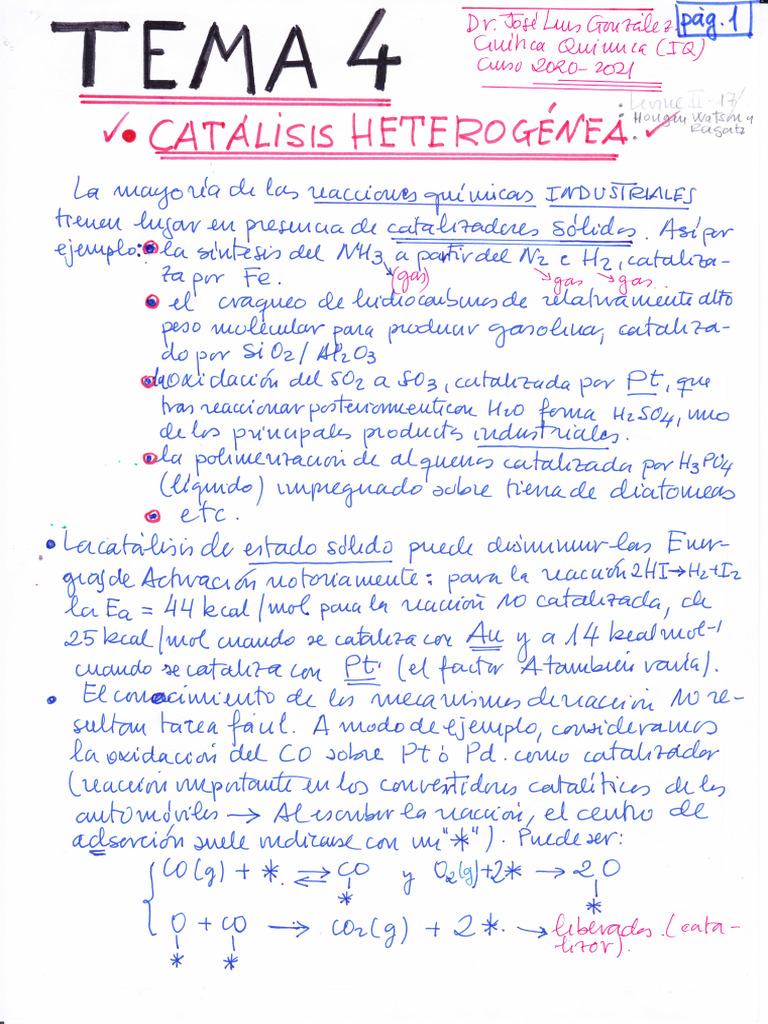 TEMA 4
Dr. José Luis González
pág. 1
Cinética Química (IQ)
Curso 2020-2021
Levine II-17/
Hougen Watson y
Ragatz
CATÁLISIS HETEROGÉNEA.
La mayoría de las reacciones químicas INDUSTRIALES
tienen lugar en presencia de catalizadores sólidos. Así por
ejemplo: la síntesis del NH3 a partir del N2 e H2, cataliza-
za por Fe. (gas) gas gas.
el craqueo de hidrocarburos de relativamente alto
peso molecular para producir gasolina, cataliza-
do por SiO2/Al2O3
la oxidación del SO2 a SO3, catalizada por Pt, que
tras reaccionar posteriormente con H2O forma H2SO4, uno
de los principales products industriales.
la polimerización de alquenos catalizada por H3PO4
(líquido) impregnado sobre tierra de diatomeas
etc.
• La catálisis de estado sólido puede disminuir las Ener-
gías de Activación notoriamente: para la reacción 2HI→H2+I2
la Ea = 44 kcal/mol para la reacción no catalizada, de
25 kcal/mol cuando se cataliza con Au y a 14 kcal mol-1
cuando se cataliza con Pt. (el factor A también varía).
• El conocimiento de los mecanismos de reacción no re-
sultan tarea fácil. A modo de ejemplo, consideramos
la oxidación del CO sobre Pt ó Pd. como catalizador
(reacción importante en los convertidores catalíticos de los
automóviles → Al escribir la reacción, el centro de
adsorción suele indicarse con un "*"). Puede ser:
CO(g) + *. ⇌ CO y O2(g)+2* → 2O
* *
O + CO → CO2(g) + 2*. → liberados. (cata-
* * lizor).